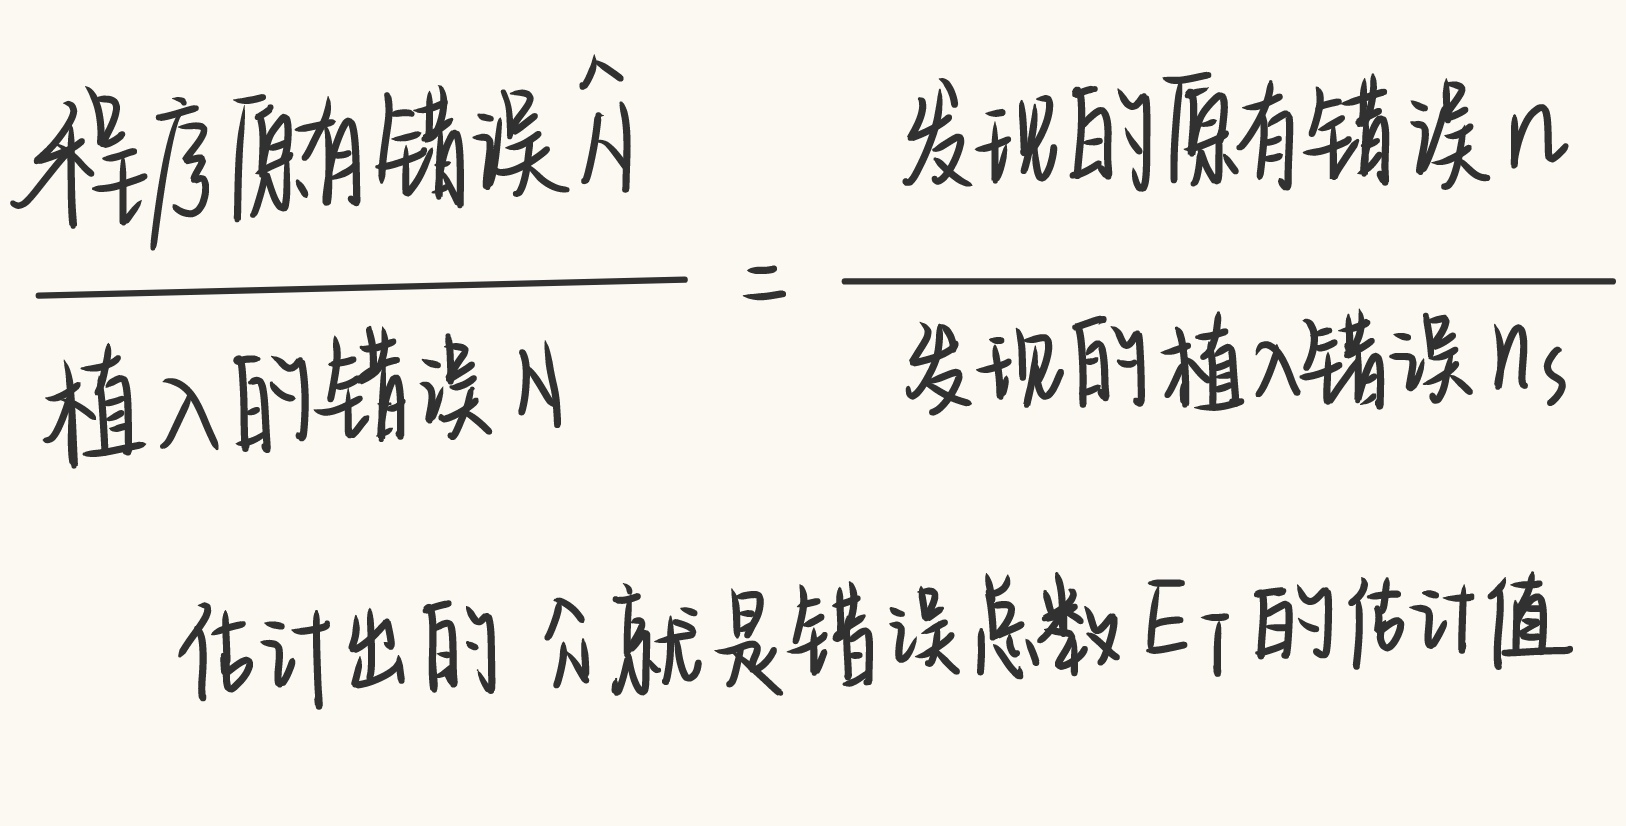 程序原有错误 N̂ = 发现的原有错误 n
植入的错误 N 发现的植入错误 ns
估计出的 N̂ 就是错误总数 ET 的估计值